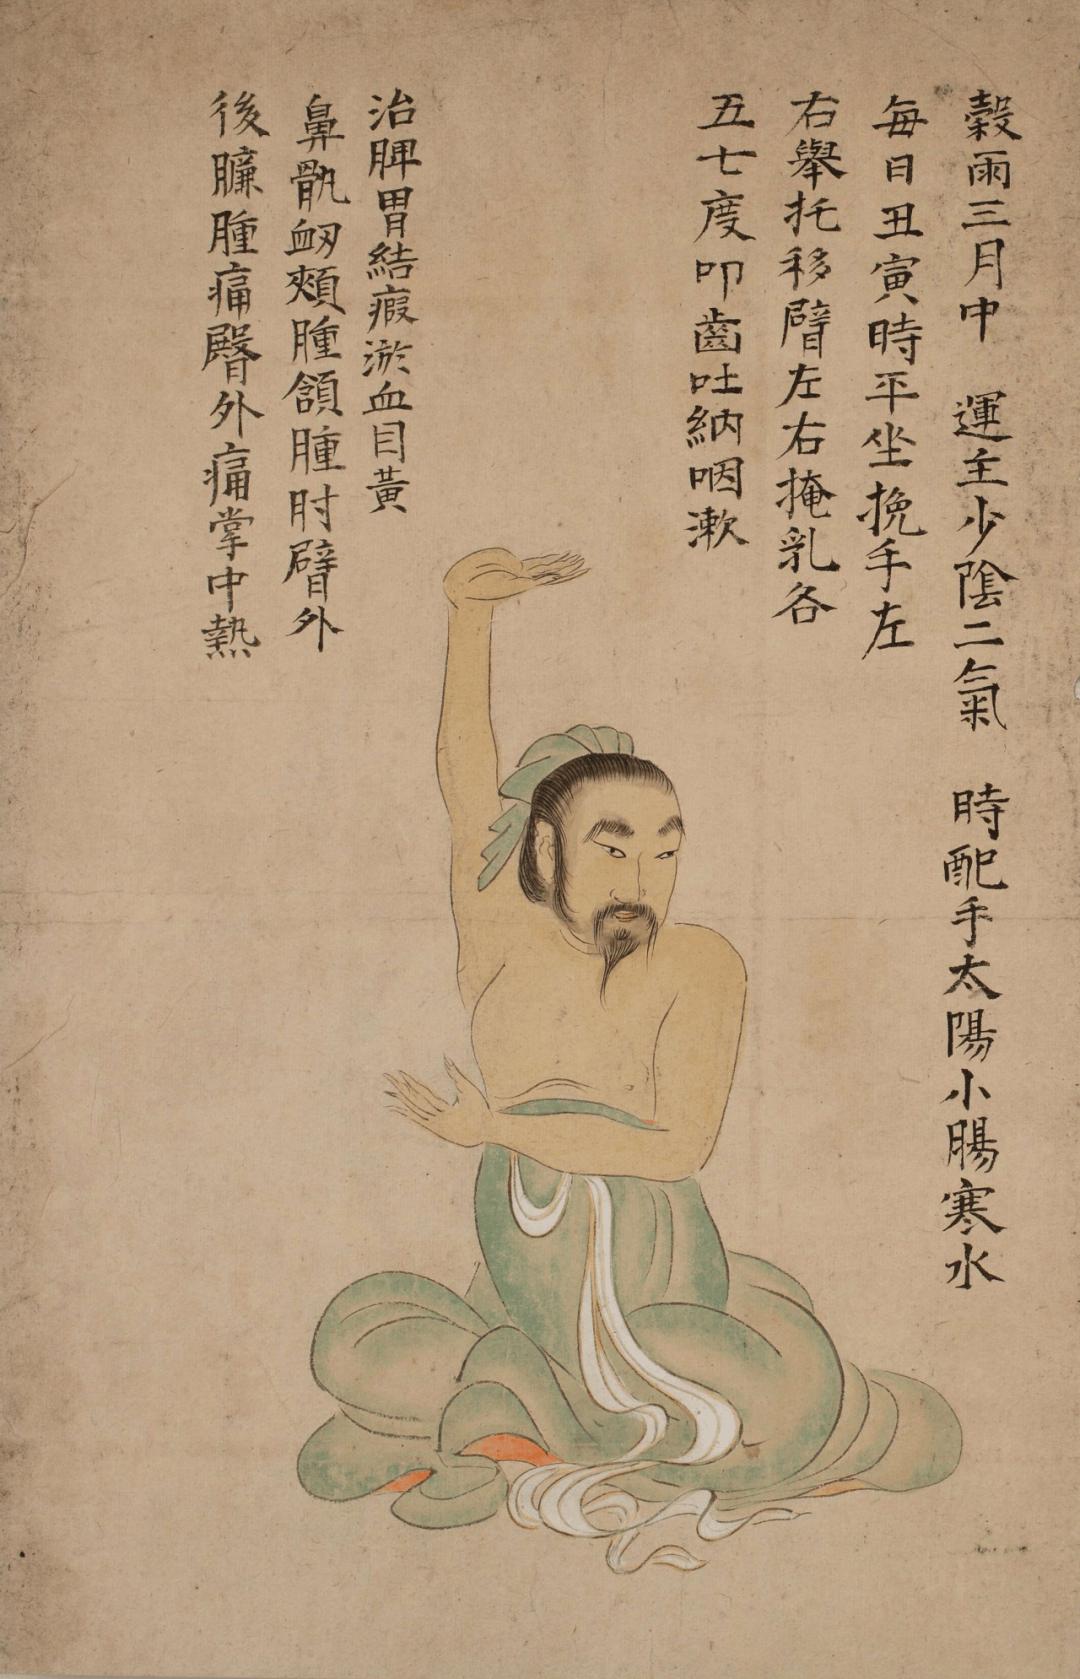 穀雨三月中 運主少陰二氣 時配手太陽小腸寒水
每日丑寅時平坐挽手左
右舉托移臂左右掩乳各
五七度叩齒吐納咽漱
治脾胃結瘕淤血目黃
鼻骩衂頰腫頷腫肘臂外
後臁腫痛臀外痛掌中熱